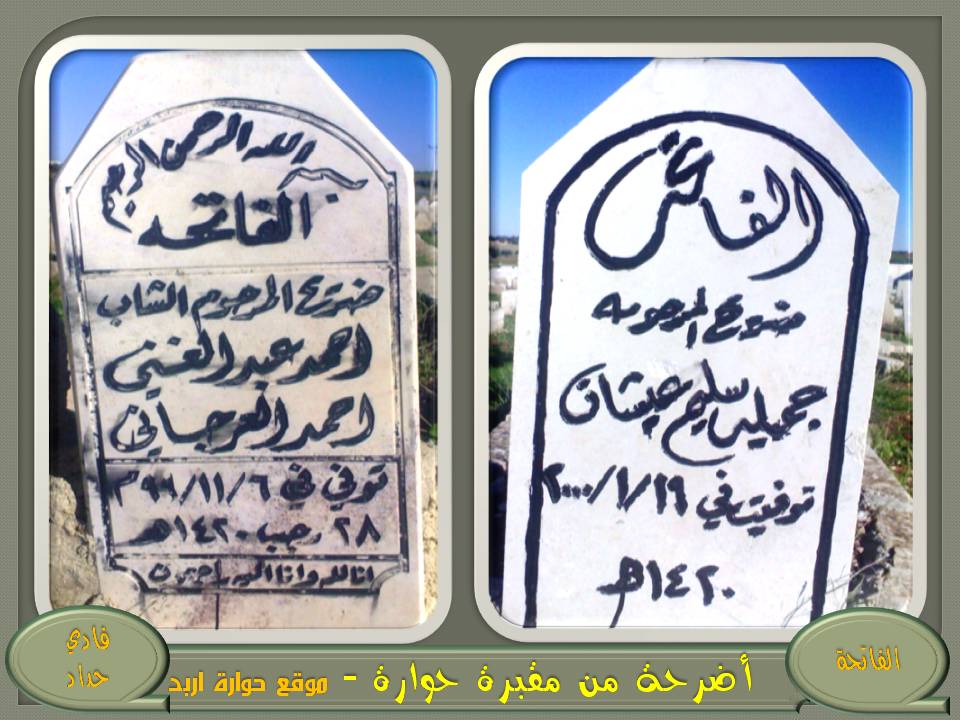 بسم الله الرحمن الرحيم
الفاتحه
ضريح المرحوم الشاب
احمد عبد الغني
احمد العرجاني
توفي في ٦/١١/٩٩م
٢٨ رجب ١٤٢٠هـ
انا لله وانا اليه راجعون
الفاتحة
ضريح المرحومه
جميله سليم عيشان
توفيت في ١٩/١/٢٠٠٠
١٤٢٠هـ
فادي
حداد
أضرحة من مقبرة حوارة - موقع حوارة اربد
الفاتحة